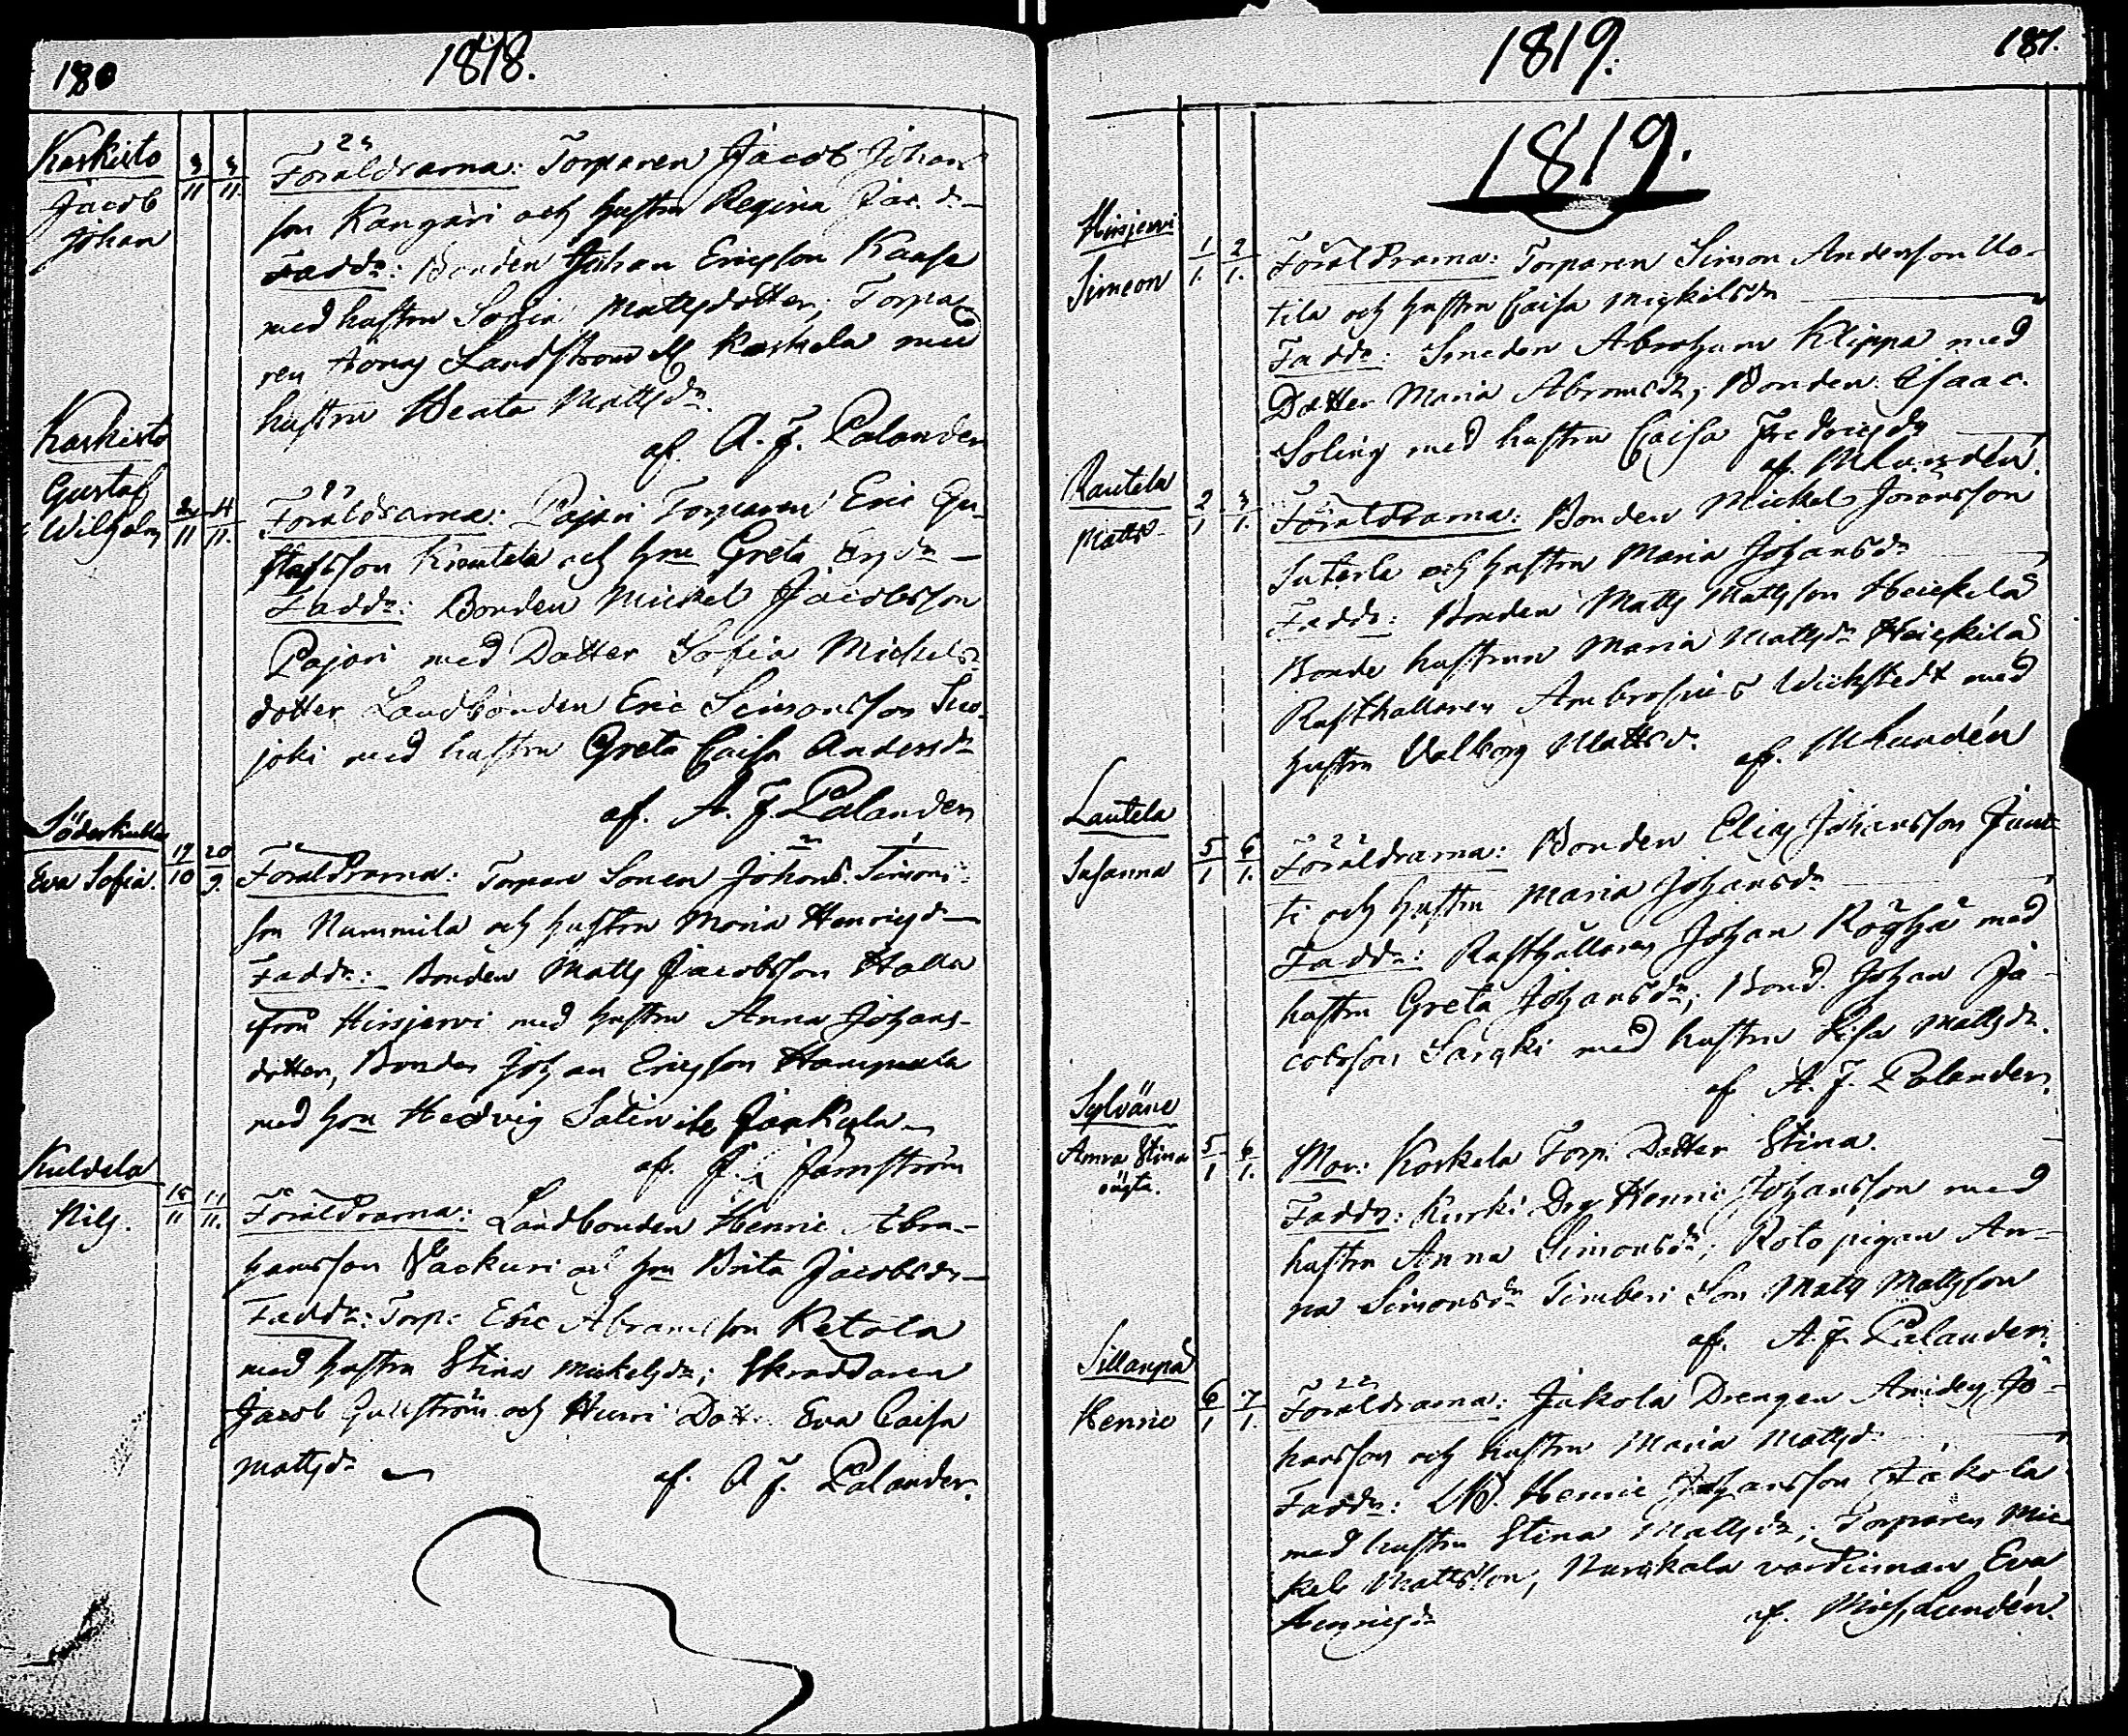 180
1818.
Karkisto
Jacob
Johan
3/11 3/11.
Föräldrarna: Torparen Jacob Johans
son Kangari och hustru Regina Jac.dr
Faddr: Bonden Johan Ericsson Kaase
med hustru Sofia Mattsdotter; Torpa
ren Landström Koskela med
hustru Beata Mattsdr.
af A. F. Palander
Karkisto
Gustaf
Wilhelm
11 4/11.
Föräldrarna: Pajari Torparen Eric Gu-
stafsson och hru Greta Ersdr
Faddr: Bonden Mickel Jacobsson
Pajari med Dotter Sofia Michels-
dotter Landbonden Eric Simonsson Suo-
joki med hustru Greta Caisa Andersdr
af. A. F. Palander
Söderkulla
Eva Sofia.
19/10 20/9.
Föräldrarna: Torpare Sonen Johan Simons-
son Nummila och hustru Maria Henricsdr
Faddr: Bonden Matts Jacobsson Halla
ifrån Hirsjerwi med hustru Anna Johans-
dotter, Bonden Johan Ericsson Hampula
med hru Hedvig
af. Jernström
Kuldala
Nils.
15/11 11.
Föräldrarna: Landbonden Henric Abra-
hamsson Väckuri och hru Brita Jacobsdr
Faddr: Torp. Eric Abramsson Ketola
med hustru Stina Mickelsdr; Skräddaren
Jacob och Dotter Eva Caisa
Mattsdr
af. A. F. Palander.
1819.
181.
1819.
Hirsjerwi
Simeon
1/1. 2/1.
Föräldrarna: Torparen Simon Andersson Uo-
tila och hustru Caisa Michilsdr
Faddr: Smeden Abraham Klippa med
Dotter Maria Abramsdr; Bonden Isaac
Soling med hustru Caisa Fredricsdr
af. M Lundén.
Rautela
Matts
2/1 3/1.
Föräldrarna: Bonden Mickel Göransson
Suterla och hustru Maria Johansdr
Faddr: Bonden Matts Mattsson Heickilä
Bonde hustrun Maria Mattsdr Heickilä
Rusthållaren Ambrosius Wickstedt med
hustru Valborg Mattsdr.
af. M Lundén
Lautela
Susanna
5/1 6/1.
Föräldrarna: Bonden Elias Johansson Jant-
ti och hustru Maria Johansdr
Faddr: Rusthållaren Johan Röyhä med
hustru Greta Johansdr; Bond. Johan Ja-
cobsson Särcki med hustru Lisa Mattsdr.
af A. F. Palander.
Sylväne
Anna Stina
oägta.
5/1 6/1.
Mor: Koskela Torp. Dotter Stina.
Faddr: Kurki Drg Henric Johansson med
hustru Anna Simonsdr; Roto pigan An-
na Simonsdr Timberi Son Matts Mattsson
af. A. F. Palander.
Sillanpää
Henric
6/1 7/1.
Föräldrarna: Jakola Drengen Anders Jo-
hansson och hustru Maria Mattsdr
Faddr: Henric Johansson Jakola
med hustru Stina Mattsdr; Torparen Mic-
kel Mattsson, värdinnan Eva
Henricsdr
af. Mich. Lundén.